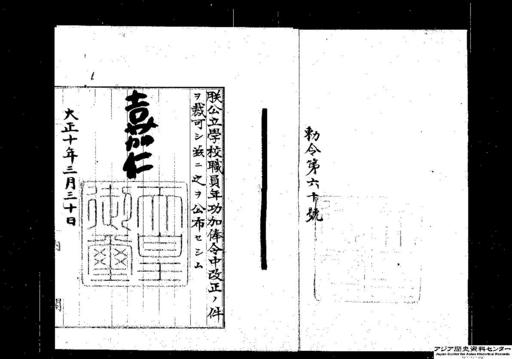 勅令第六十號
朕公立學校職員年功加俸令中改正ノ件
ヲ裁可シ茲ニ之ヲ公布セシム
嘉仁
天皇御璽
大正十年三月三十日
内閣
アジア歴史資料センター
Japan Center for Asian Historical Records